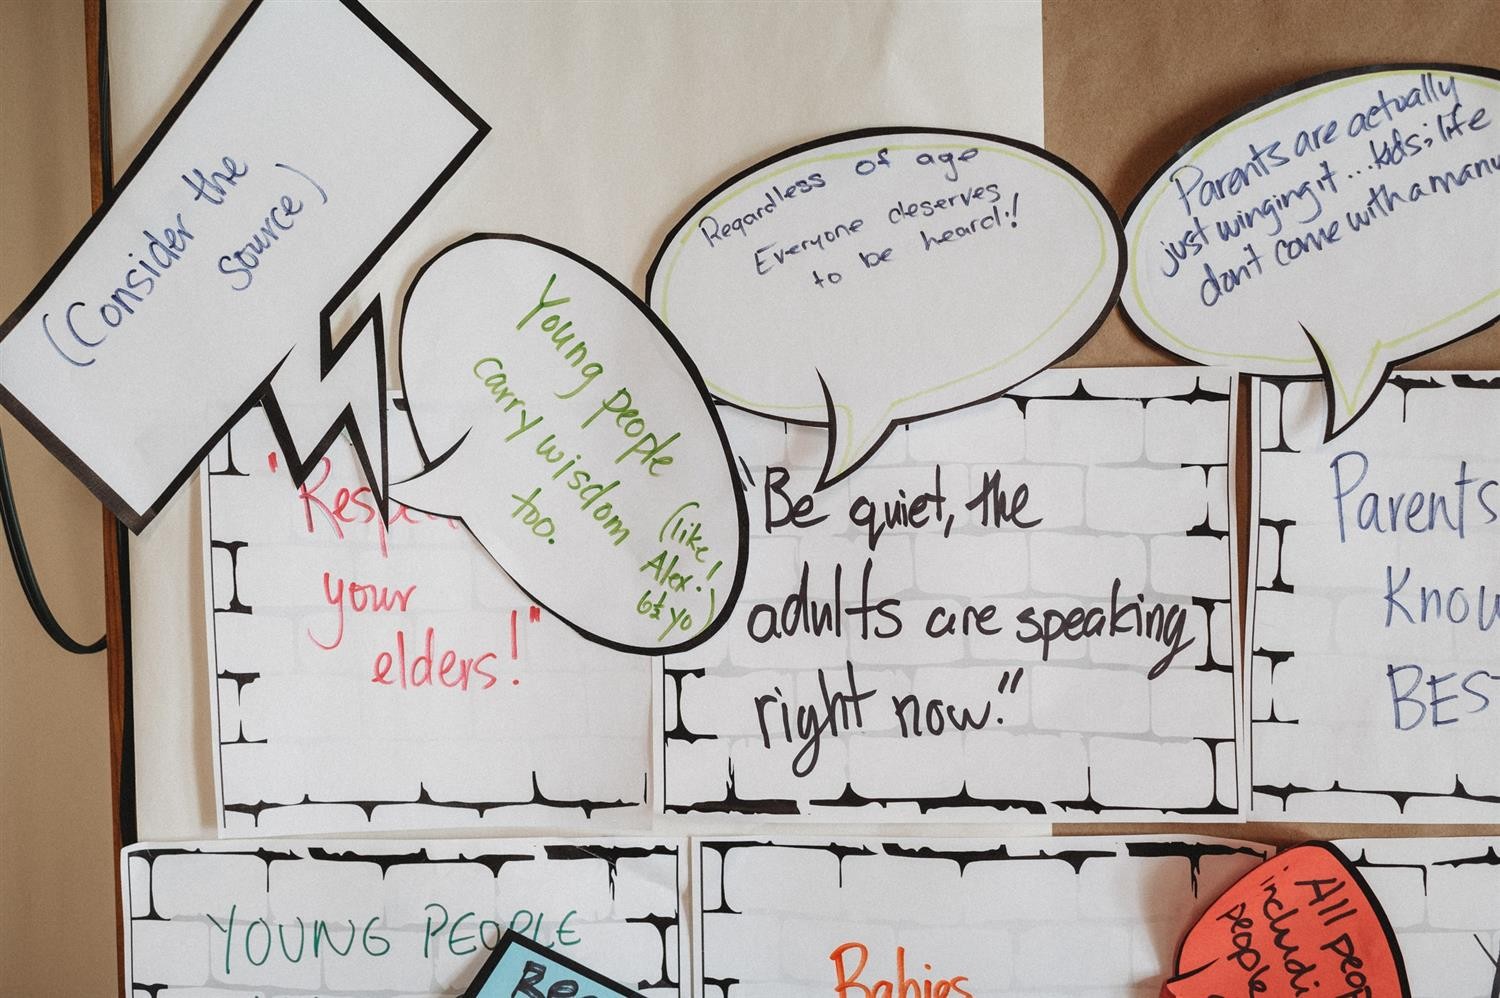 (Consider the
source)
Young people
carry wisdom
too.
(like!
Alex!
6½ yo)
Regardless of age
Everyone deserves
to be heard!!
Parents are actually
just winging it ... kids; life
don't come with a manu
"Resp
your
elders!"
"Be quiet, the
adults are speaking
right now."
Parents
Know
BEST
YOUNG PEOPLE
Babies
All peop
includi
people